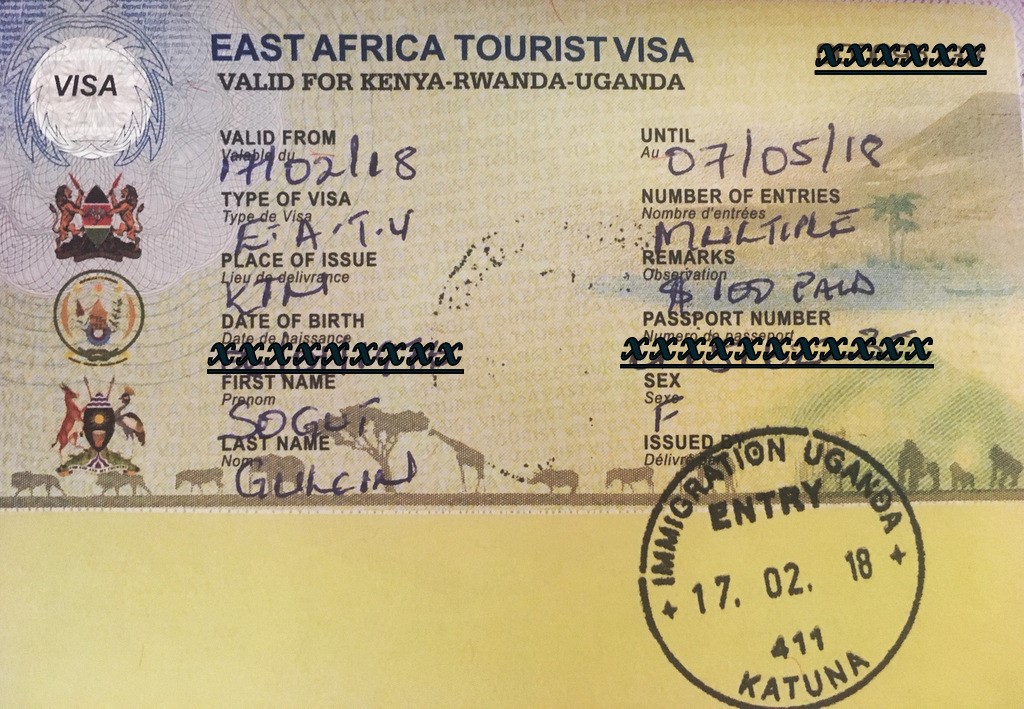 VISA
EAST AFRICA TOURIST VISA
xxxxxx
VALID FOR KENYA-RWANDA-UGANDA
VALID FROM
Valable du
17/02/18
UNTIL
Au
07/05/18
TYPE OF VISA
Type de Visa
E.A.T.V
NUMBER OF ENTRIES
Nombre d'entrées
MULTIPLE
PLACE OF ISSUE
Lieu de delivrance
KTN
REMARKS
Observation
$ 100 PAID
DATE OF BIRTH
Date de naissance
xxxxxxxxx
PASSPORT NUMBER
Numero de passeport
xxxxxxxxxxx
FIRST NAME
Prenom
SOGUT
SEX
Sexe
F
LAST NAME
Nom
GULCIN
ISSUED BY
Délivré
IMMIGRATION UGANDA
ENTRY
17. 02. 18
411
KATUNA